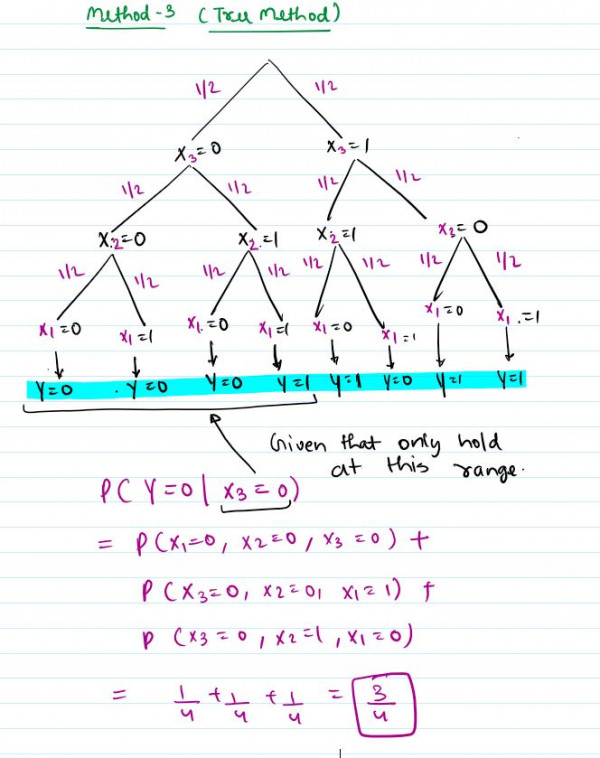 Method-3 (Tree Method)
1/2 1/2
X3=0 X3=1
1/2 1/2 1/2 1/2
X2=0 X2=1 X2=1 X2=0
1/2 1/2 1/2 1/2 1/2 1/2 1/2 1/2
X1=0 X1=1 X1=0 X1=1 X1=0 X1=1 X1=0 X1=1
Y=0 Y=0 Y=0 Y=1 Y=1 Y=0 Y=1 Y=1
Given that only hold
at this range.
P(Y=0 | X3=0)
= P(X1=0, X2=0, X3=0) +
P(X3=0, X2=0, X1=1) +
P(X3=0, X2=1, X1=0)
= 1/4 + 1/4 + 1/4 = 3/4